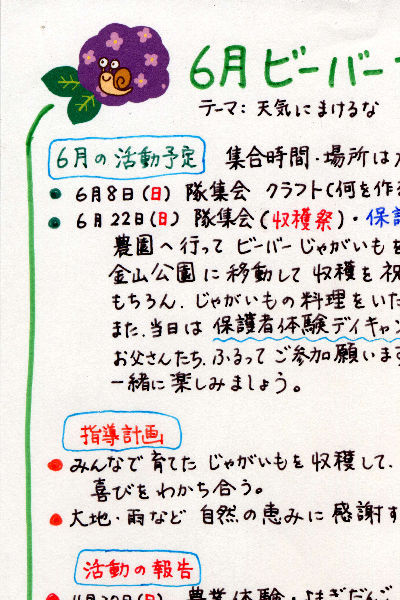 6月ビーバー
テーマ: 天気にまけるな
6月の活動予定 集合時間・場所は
● 6月8日(日) 隊集会 クラフト(何を作
● 6月22日(日) 隊集会(収穫祭)・保
農園へ行って ビーバーじゃがいも
金山公園に移動して 収穫を祝
もちろん、じゃがいもの料理をいた
また、当日は 保護者体験デイキャン
お父さんたち、ふるってご参加願います
一緒に楽しみましょう。
指導計画
● みんなで育てた じゃがいもを収穫して、
喜びをわかち合う。
● 大地・雨など 自然の恵みに感謝す
活動の報告
農業体験・よもぎだんご